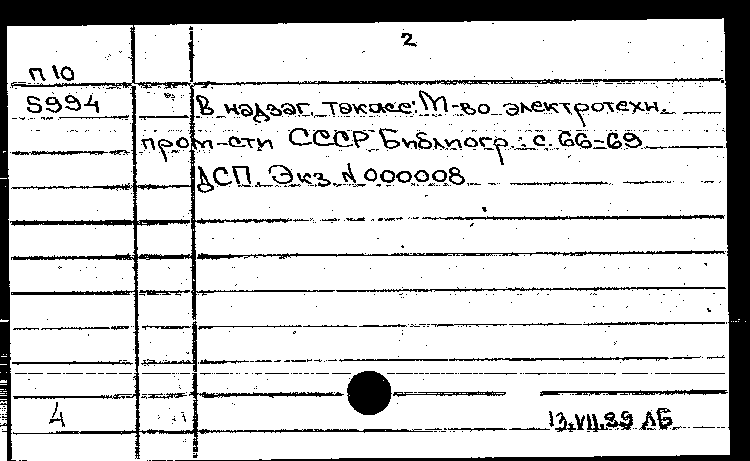 2
П 10
5994
В надзаг. также: М-во электротехн.
пром-сти СССР Библиогр.: с. 66-69
ДСП. Экз. N 000008
4
13.VII.89 ЛБ